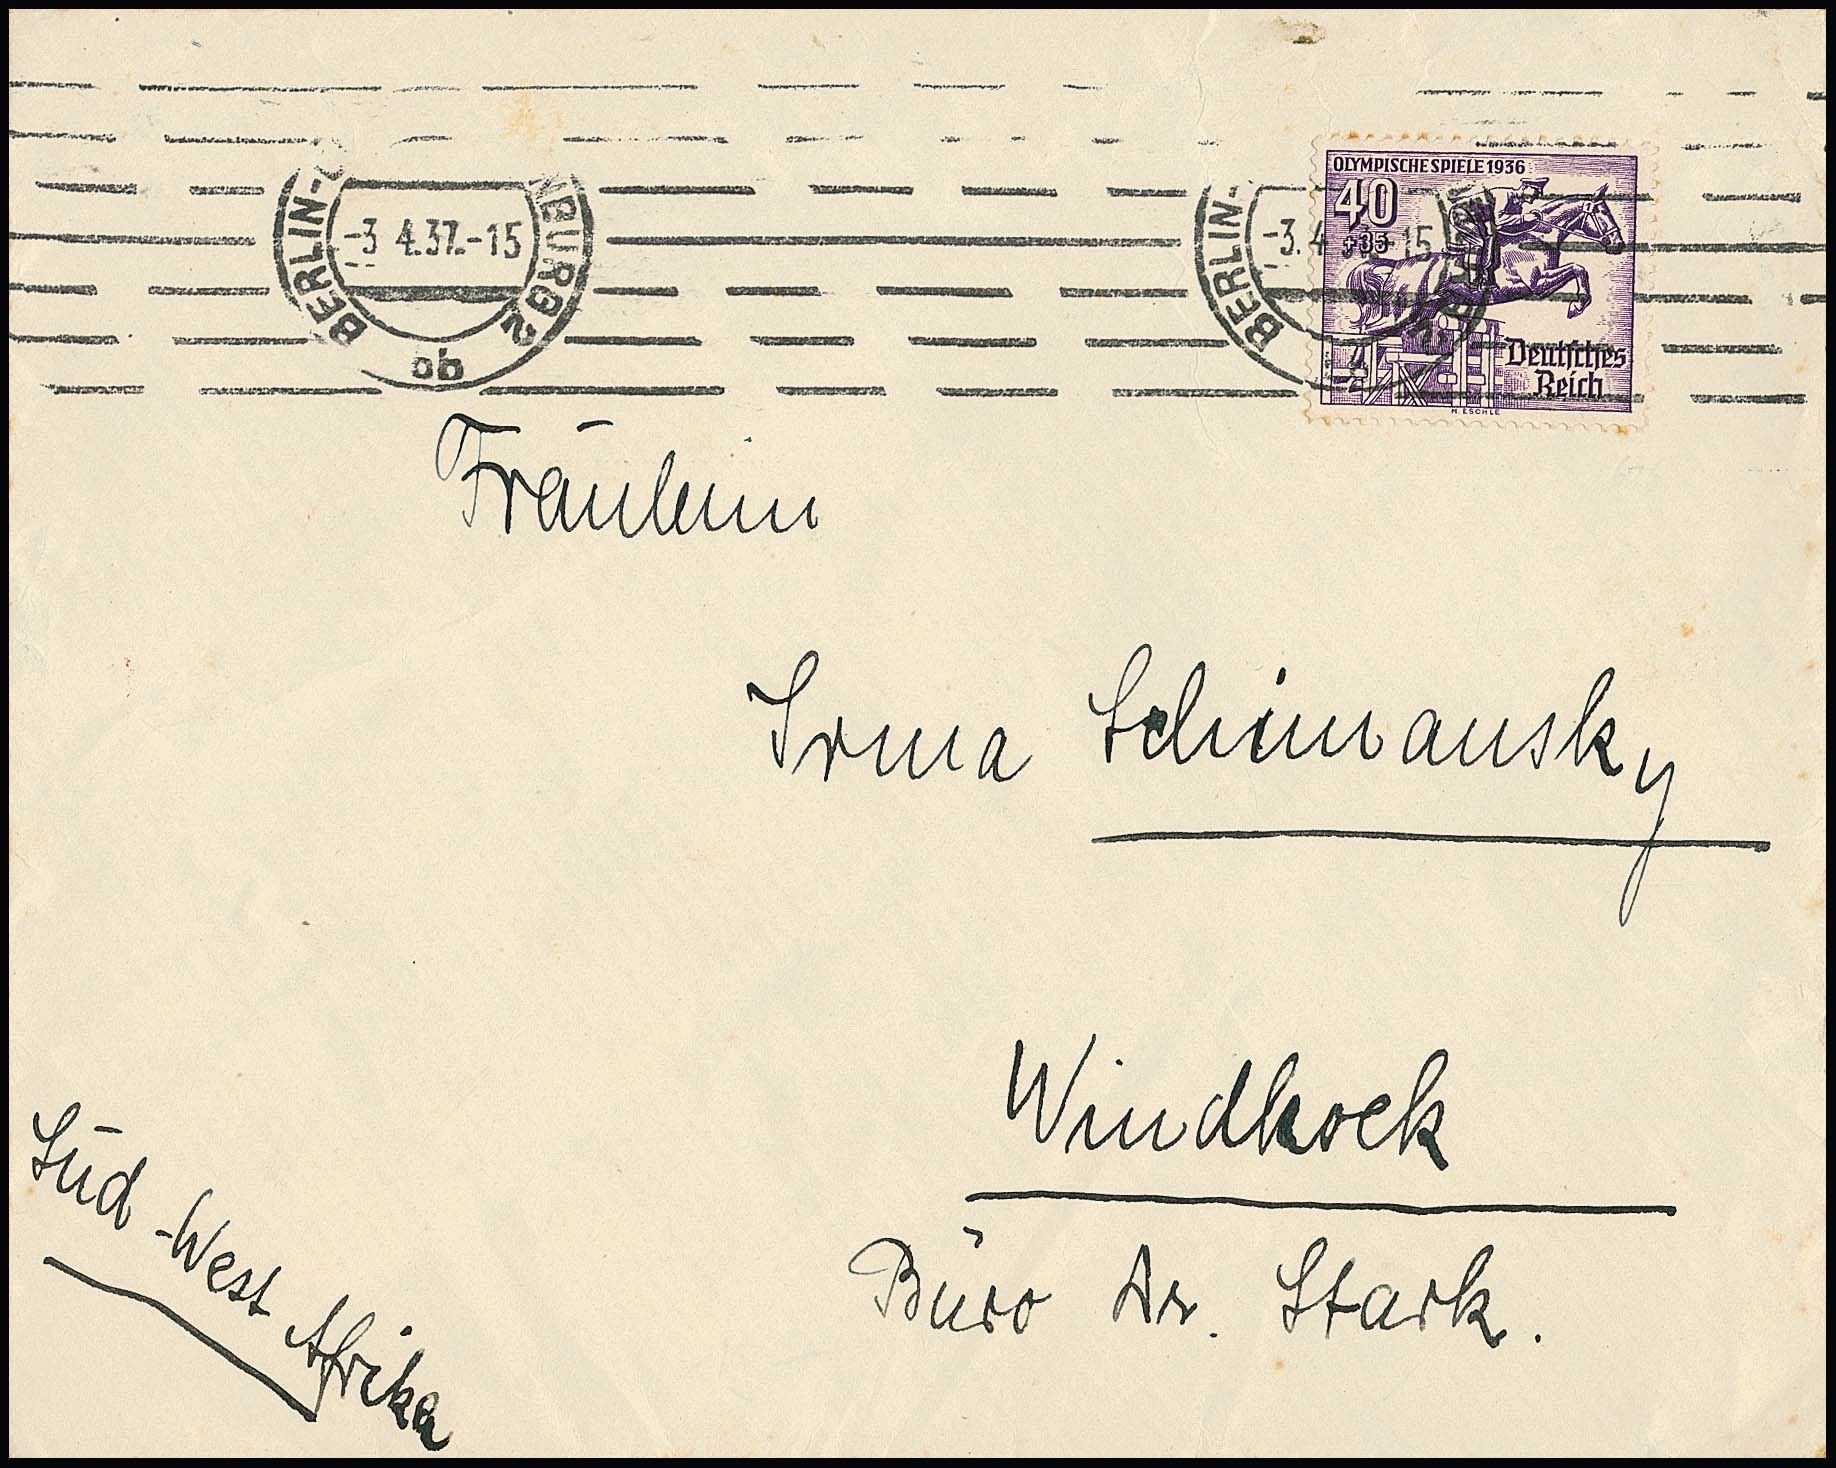 BERLIN-
BURG 2
-3.4.37.-15
ob
BERLIN-
-3.4
-15
OLYMPISCHE SPIELE 1936
40
+35
Deutsches
Reich
H. ESCHLE
Fräulein
Irma Schimansky
Windhoek
Büro Dr. Stark.
Süd-West Afrika